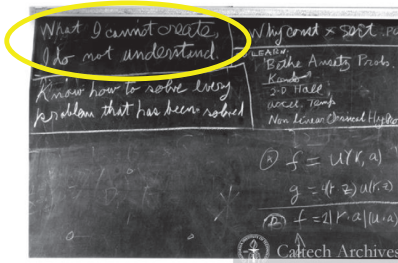 What I cannot create,
I do not understand.
Know how to solve every
problem that has been solved
Why const × sort : PO
TO LEARN:
Bethe Ansatz Prob.
Kondo
2-D Hall
accel. Temp
Non Linear Classical Hydro
Ⓐ f = u(r, a)
g = 4(r·z) u(r, z)
Ⓑ f = 2|r·a|(u·a)
Caltech Archives